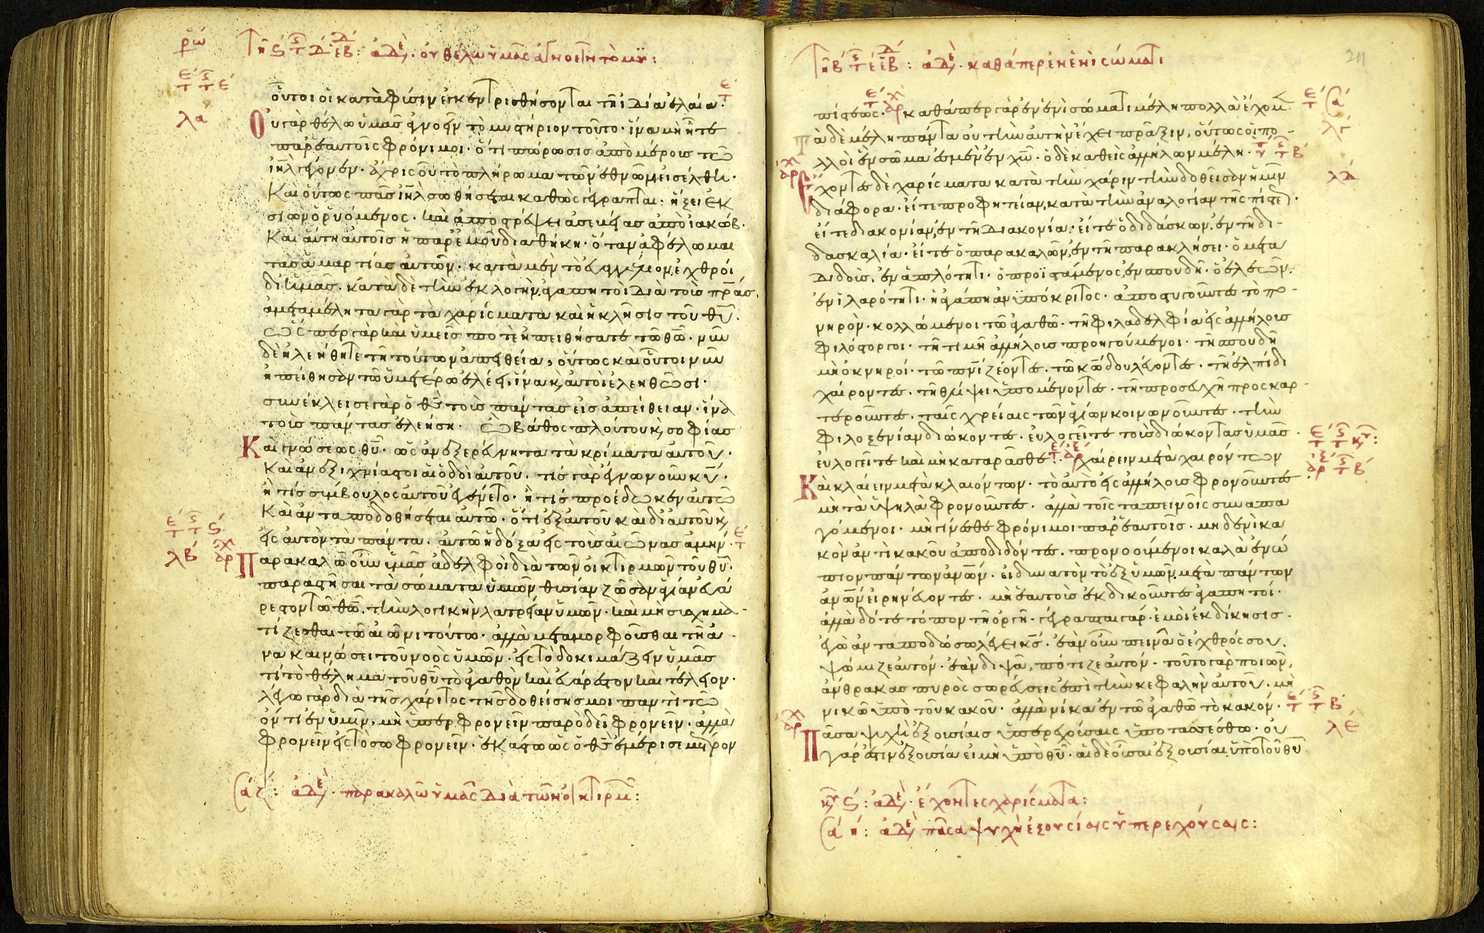 οὗτοι οἱ κατὰ φύσιν ἐγκεντρισθήσονται τῆ ἰδία ἐλαία.
Οὐ γὰρ θέλω ὑμᾶς ἀγνοεῖν τὸ μυστήριον τοῦτο· ἵνα μὴ ἦτε
παρ' ἑαυτοῖς φρόνιμοι· ὅτι πώρωσις ἀπὸ μέρους τῶ
ἰηλ γέγονεν· ἄχρις οὗ τὸ πλήρωμα τῶν ἐθνῶν εἰσέλθη·
Καὶ οὕτως πᾶς ἰηλ σωθήσεται καθὼς γέγραπται· ἥξει ἐκ
σιὼν ὁ ῥυόμενος· καὶ ἀποστρέψει ἀσεβείας ἀπὸ ἰακώβ·
Καὶ αὕτη αὐτοῖς ἡ παρ' ἐμοῦ διαθήκη· ὅταν ἀφέλωμαι
τὰς ἁμαρτίας αὐτῶν· κατὰ μὲν τὸ εὐαγγέλιον ἐχθροὶ
δι' ὑμᾶς· κατὰ δὲ τὴν ἐκλογὴν ἀγαπητοὶ διὰ τοὺς πρας·
ἀμεταμέλητα γὰρ τὰ χαρίσματα καὶ ἡ κλῆσις τοῦ θυ·
Ὥσπερ γὰρ καὶ ὑμεῖς ποτὲ ἠπειθήσατε τῶ θω· νῦν
δὲ ἠλεήθητε τῆ τούτων ἀπειθεία, οὕτως καὶ οὗτοι νῦν
ἠπείθησαν τῶ ὑμετέρω ἐλέει ἵνα κ αὐτοὶ ἐλεηθῶσι·
συνέκλεισε γὰρ ὁ θς τοὺς πάντας εἰς ἀπείθειαν· ἵνα
τοὺς πάντας ἐλεήση· Ὦ βάθος πλούτου κ σοφίας
Καὶ γνώσεως θυ· ὡς ἀνεξερεύνητα τὰ κρίματα αὐτοῦ·
Καὶ ἀνεξιχνίαστοι αἱ ὁδοὶ αὐτοῦ· τίς γὰρ ἔγνω νοῦν κυ·
ἢ τίς σύμβουλος αὐτοῦ ἐγένετο· ἢ τίς προέδωκεν αὐτῶ
Καὶ ἀνταποδοθήσεται αὐτῶ· ὅτι ἐξ αὐτοῦ καὶ δι' αὐτοῦ κ
εἰς αὐτὸν τὰ πάντα· αὐτῶ ἡ δόξα εἰς τοὺς αἰῶνας ἀμήν·
Παρακαλῶ οὖν ὑμᾶς ἀδελφοὶ διὰ τῶν οἰκτιρμῶν τοῦ θυ·
παραστῆσαι τὰ σώματα ὑμῶν θυσίαν ζῶσαν ἁγίαν εὐά
ρεστον τῶ θω, τὴν λογικὴν λατρείαν ὑμῶν· καὶ μὴ συσχημα-
τίζεσθαι τῶ αἰῶνι τούτω· ἀλλὰ μεταμορφοῦσθαι τῆ ἀ-
νακαινώσει τοῦ νοὸς ὑμῶν· εἰς τὸ δοκιμάζειν ὑμᾶς
τί τὸ θέλημα τοῦ θυ τὸ ἀγαθὸν καὶ εὐάρεστον καὶ τέλειον·
λέγω γὰρ διὰ τῆς χάριτος τῆς δοθείσης μοι παντὶ τῶ
ὄντι ἐν ὑμῖν, μὴ ὑπερφρονεῖν παρ' ὃ δεῖ φρονεῖν· ἀλλὰ
φρονεῖν εἰς τὸ σωφρονεῖν· ἑκάστω ὡς ὁ θς ἐμέρισε μέτρον
πίστεως· καθάπερ γὰρ ἐν ἑνὶ σώματι μέλη πολλὰ ἔχομ
τὰ δὲ μέλη πάντα οὐ τὴν αὐτὴν ἔχει πρᾶξιν, οὕτως οἱ πο-
λλοὶ ἓν σῶμα ἐσμὲν ἐν χω· ὁ δὲ καθεὶς ἀλλήλων μέλη·
Ἔχοντες δὲ χαρίσματα κατὰ τὴν χάριν τὴν δοθεῖσαν ἡμῖν
διάφορα· εἴτε προφητείαν, κατὰ τὴν ἀναλογίαν τῆς πίστε·
εἴτε διακονίαν, ἐν τῆ διακονία· εἴτε ὁ διδάσκων, ἐν τῆ δι-
δασκαλία· εἴτε ὁ παρακαλῶν, ἐν τῆ παρακλήσει· ὁ μετα
διδοὺς, ἐν ἁπλότητι· ὁ προϊστάμενος, ἐν σπουδῆ· ὁ ἐλεῶν,
ἐν ἱλαρότητι· ἡ ἀγάπη ἀνυπόκριτος· ἀποστυγοῦντες τὸ πο-
νηρὸν· κολλώμενοι τῶ ἀγαθῶ· τῆ φιλαδελφία εἰς ἀλλήλους
φιλόστοργοι· τῆ τιμῆ ἀλλήλους προηγούμενοι· τῆ σπουδῆ
μὴ ὀκνηροί· τῶ πνι ζέοντες· τῶ κω δουλεύοντες· τῆ ἐλπίδι
χαίροντες· τῆ θλίψει ὑπομένοντες· τῆ προσευχῆ προσκαρ-
τεροῦντες· ταῖς χρείαις τῶν ἁγίων κοινωνοῦντες· τὴν
φιλοξενίαν διώκοντες· εὐλογεῖτε τοὺς διώκοντας ὑμᾶς·
εὐλογεῖτε καὶ μὴ καταρᾶσθε· χαίρειν μετὰ χαιρόντων
Καὶ κλαίειν μετὰ κλαιόντων· τὸ αὐτὸ εἰς ἀλλήλους φρονοῦντες·
μὴ τὰ ὑψηλὰ φρονοῦντες· ἀλλὰ τοῖς ταπεινοῖς συναπα
γόμενοι· μὴ γίνεσθε φρόνιμοι παρ' ἑαυτοῖς· μηδενὶ κα
κὸν ἀντὶ κακοῦ ἀποδιδόντες· προνοούμενοι καλὰ ἐνώ
πιον πάντων ἀνων· εἰ δυνατὸν τὸ ἐξ ὑμῶν, μετὰ πάντων
ἀνων εἰρηνεύοντες· μὴ ἑαυτοὺς ἐκδικοῦντες ἀγαπητοί·
ἀλλὰ δότε τόπον τῆ ὀργῆ· γέγραπται γάρ· ἐμοὶ ἐκδίκησις·
ἐγὼ ἀνταποδώσω λέγει κς· ἐὰν οὖν πεινᾶ ὁ ἐχθρός σου,
ψώμιζε αὐτόν· ἐὰν διψᾶ, πότιζε αὐτόν· τοῦτο γὰρ ποιῶν,
ἄνθρακας πυρὸς σωρεύσεις ἐπὶ τὴν κεφαλὴν αὐτοῦ· μὴ
νικῶ ὑπὸ τοῦ κακοῦ· ἀλλὰ νίκα ἐν τῶ ἀγαθῶ τὸ κακόν·
Πᾶσα ψυχὴ ἐξουσίαις ὑπερεχούσαις ὑποτασσέσθω· οὐ
γάρ ἐστιν ἐξουσία εἰ μὴ ὑπὸ θυ· αἱ δὲ οὖσαι ἐξουσίαι ὑπὸ τοῦ θυ